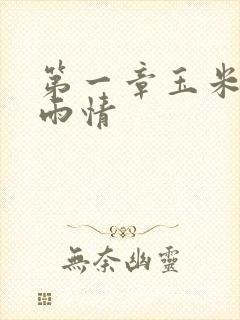 第一章玉米
雨情
無奈幽靈